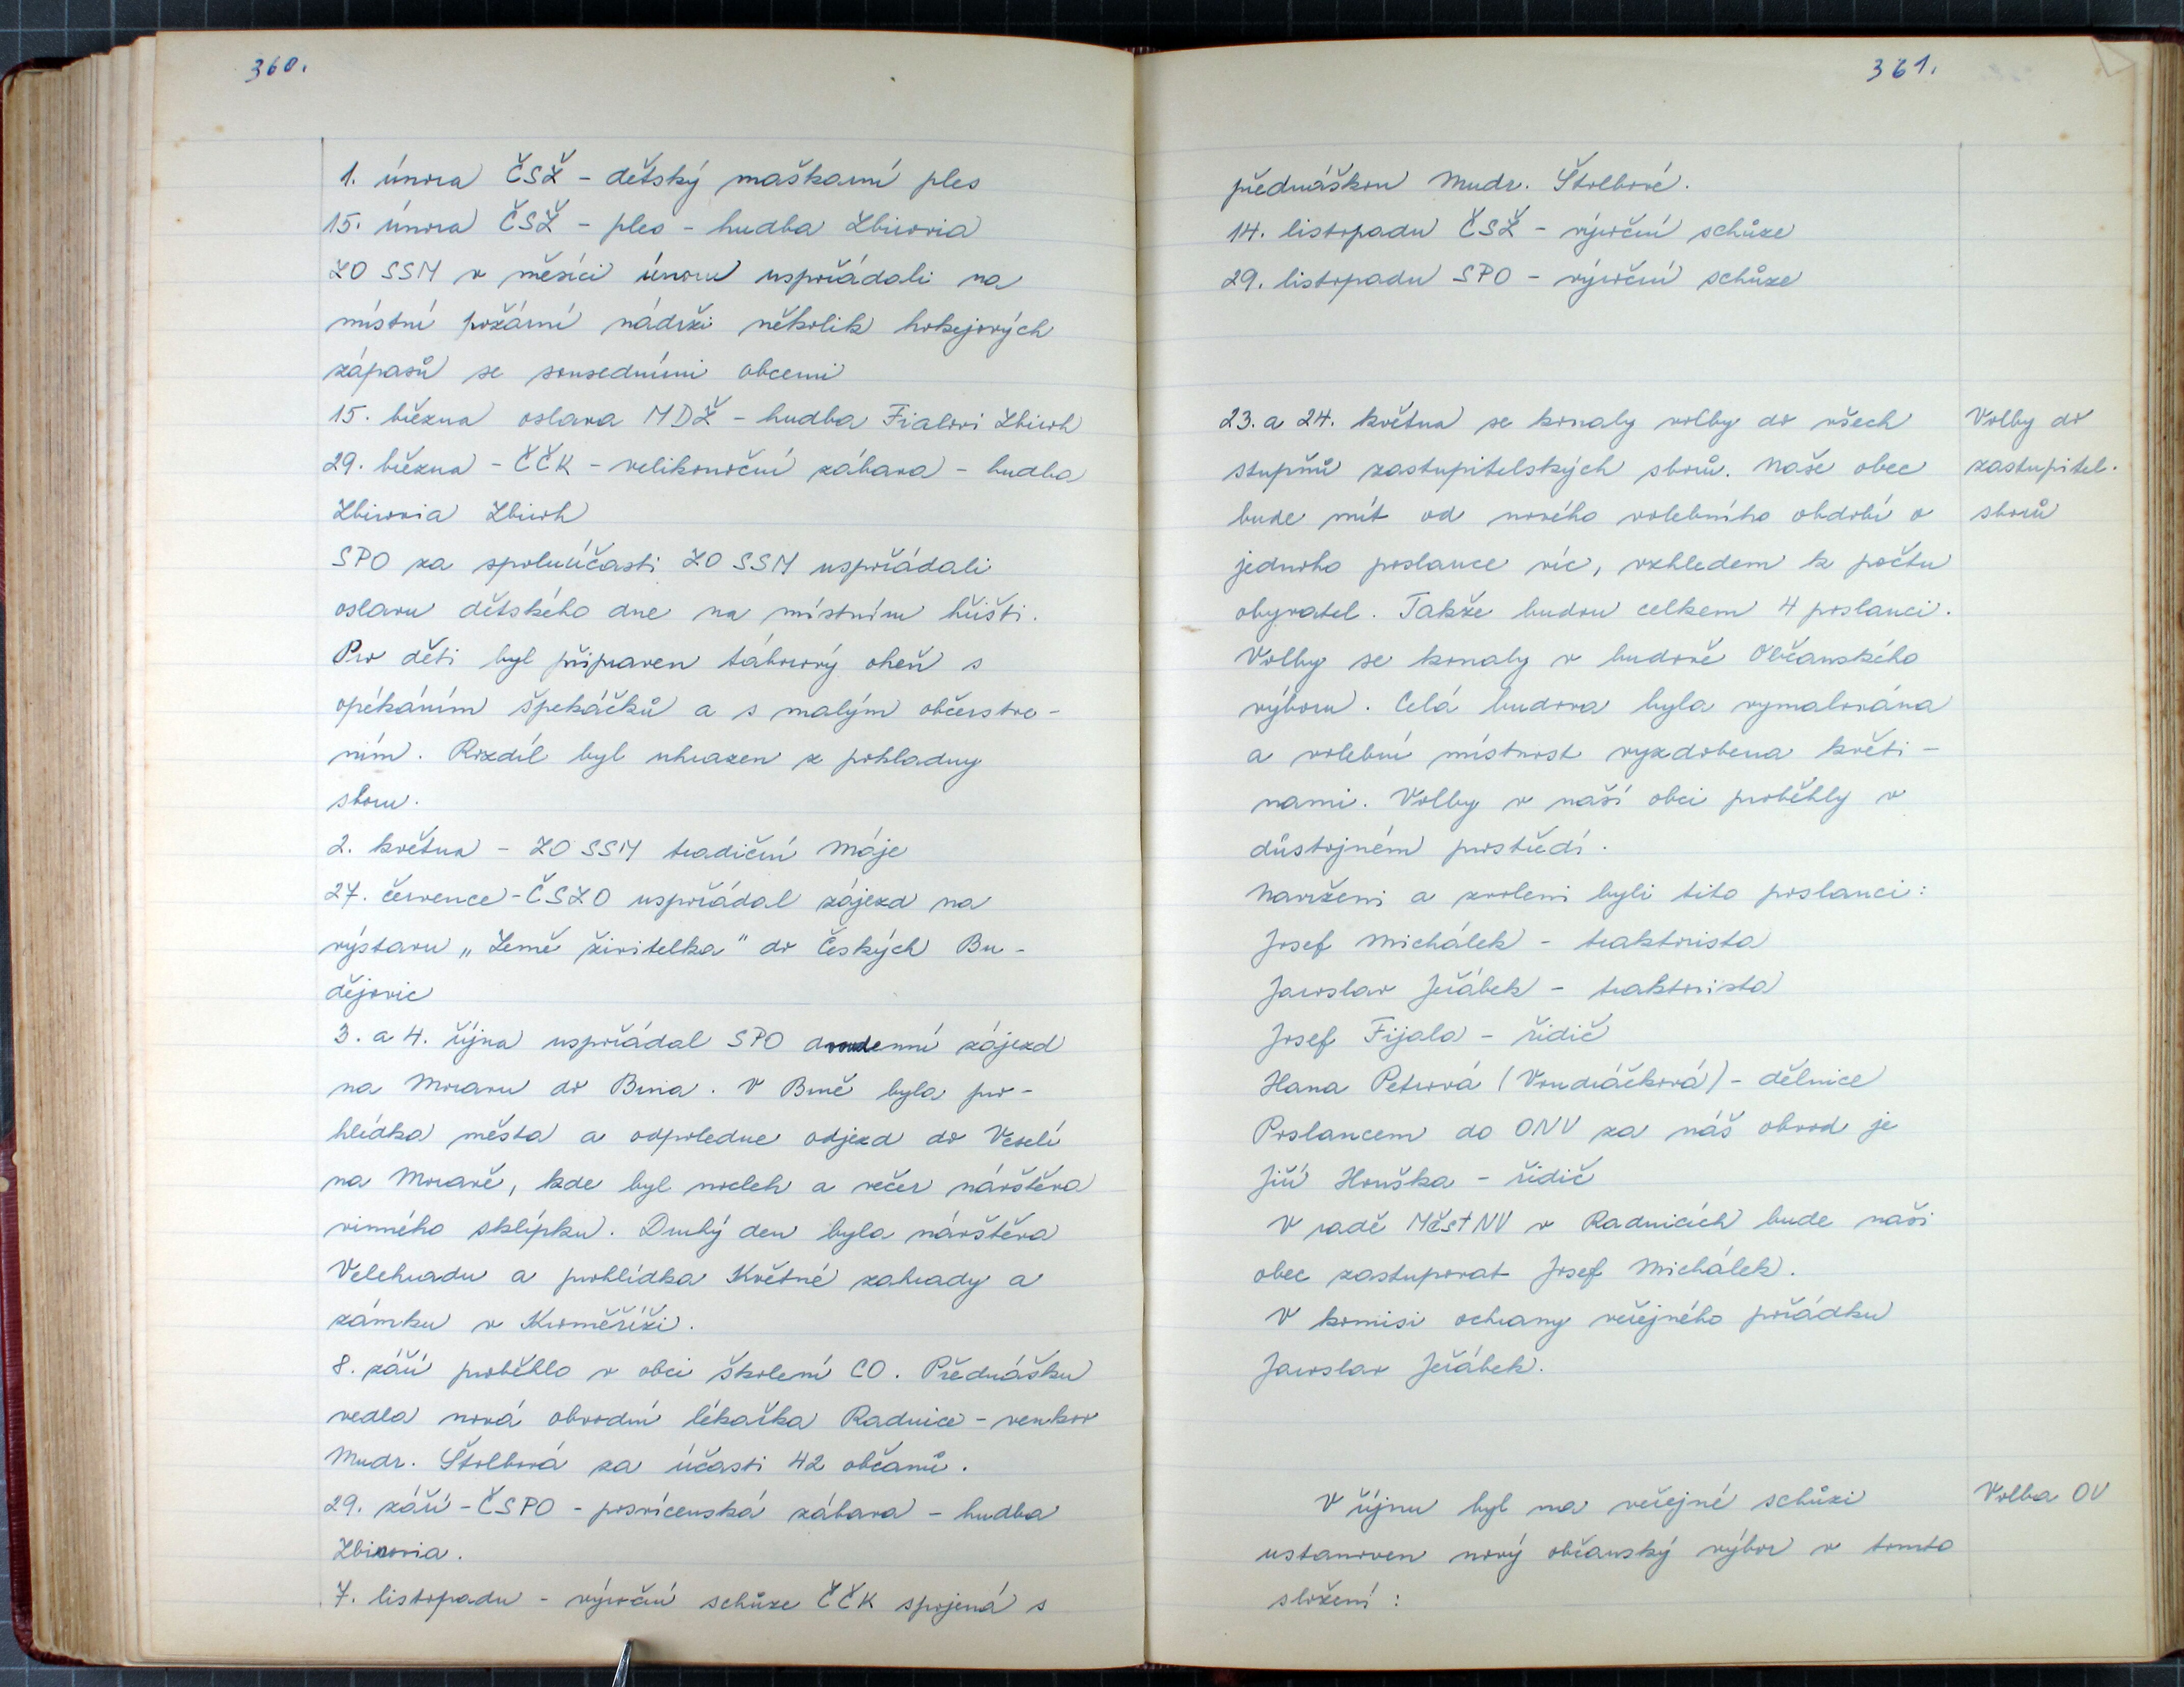 360.
1. února ČSŽ - dětský maškarní ples
15. února ČSŽ - ples - hudba Zbirovia
ZO SSM v měsíci únoru uspořádali na
místní požární nádrži několik hokejových
zápasů se sousedními obcemi
15. března oslava MDŽ - hudba Fialovi Zbiroh
29. března - ČČK - velikonoční zábava - hudba
Zbirovia Zbiroh
SPO za spoluúčasti ZO SSM uspořádali
oslavu dětského dne na místním hřišti.
Pro děti byl připraven táborový oheň s
opékáním špekáčků a s malým občerstve-
ním. Rozdíl byl uhrazen z pokladny
sboru.
2. května - ZO SSM tradiční Máje
27. července - ČSZO uspořádal zájezd na
výstavu „Země živitelka" do Českých Bu-
dějovic
3. a 4. října uspořádal SPO dvoudenní zájezd
na Moravu do Brna. V Brně byla pro-
hlídka města a odpoledne odjezd do Veselí
na Moravě, kde byl nocleh a večer návštěva
vinného sklípku. Druhý den byla návštěva
Velehradu a prohlídka Květné zahrady a
zámku v Kroměříži.
8. září proběhlo v obci školení CO. Přednášku
vedla nová obvodní lékařka Radnice - venkov
Mudr. Štolbová za účasti 42 občanů.
29. září - ČSPO - posvícenská zábava - hudba
Zbirovia.
7. listopadu - výroční schůze ČČK spojená s
361.
přednáškou Mudr. Štolbové.
14. listopadu ČSŽ - výroční schůze
29. listopadu SPO - výroční schůze
Volby do
zastupitel.
sborů
23. a 24. května se konaly volby do všech
stupňů zastupitelských sborů. Naše obec
bude mít od nového volebního období o
jednoho poslance víc, vzhledem k počtu
obyvatel. Takže budou celkem 4 poslanci.
Volby se konaly v budově Občanského
výboru. Celá budova byla vymalována
a volební místnost vyzdobena květi-
nami. Volby v naší obci proběhly v
důstojném prostředí.
Navrženi a zvoleni byli tito poslanci:
Josef Michálek - traktorista
Jaroslav Jeřábek - traktorista
Josef Fijala - řidič
Hana Petrová (Vondráčková) - dělnice
Poslancem do ONV za náš obvod je
Jiří Houška - řidič
V radě MěstNV v Radnicích bude naši
obec zastupovat Josef Michálek.
V komisi ochrany veřejného pořádku
Jaroslav Jeřábek.
Volba OV
V říjnu byl na veřejné schůzi
ustanoven nový občanský výbor v tomto
složení: